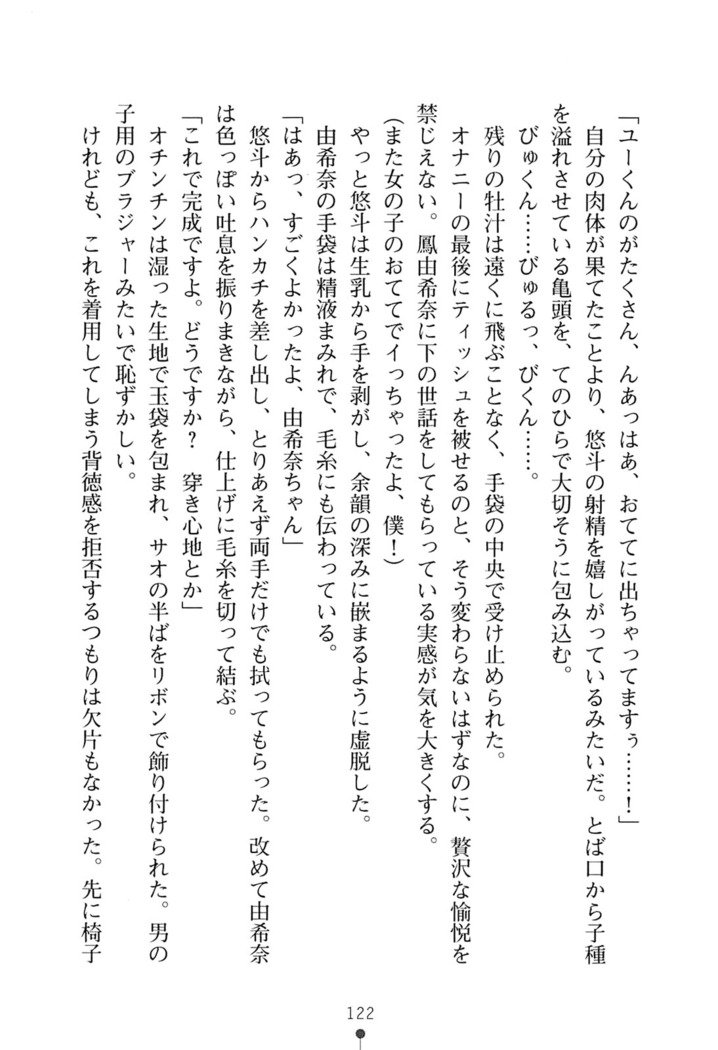 「ユーくんのがたくさん、んあっはあ、おててに出ちゃってますぅ……！」
自分の肉体が果てたことより、悠斗の射精を嬉しがっているみたいだ。とば口から子種
を溢れさせている亀頭を、てのひらで大切そうに包み込む。
びゅくん……びゅるっ、びくん……。
残りの牡汁は遠くに飛ぶことなく、手袋の中央で受け止められた。
オナニーの最後にティッシュを被せるのと、そう変わらないはずなのに、贅沢な愉悦を
禁じえない。鳳由希奈に下の世話をしてもらっている実感が気を大きくする。
（また女の子のおててでイっちゃったよ、僕！）
やっと悠斗は生乳から手を剥がし、余韻の深みに嵌まるように虚脱した。
由希奈の手袋は精液まみれで、毛糸にも伝わっている。
「はあっ、すごくよかったよ、由希奈ちゃん」
悠斗からハンカチを差し出し、とりあえず両手だけでも拭ってもらった。改めて由希奈
は色っぽい吐息を振りまきながら、仕上げに毛糸を切って結ぶ。
「これで完成ですよ。どうですか？　穿き心地とか」
オチンチンは湿った生地で玉袋を包まれ、サオの半ばをリボンで飾り付けられた。男の
子用のブラジャーみたいで恥ずかしい。
けれども、これを着用してしまう背徳感を拒否するつもりは欠片もなかった。先に椅子
122